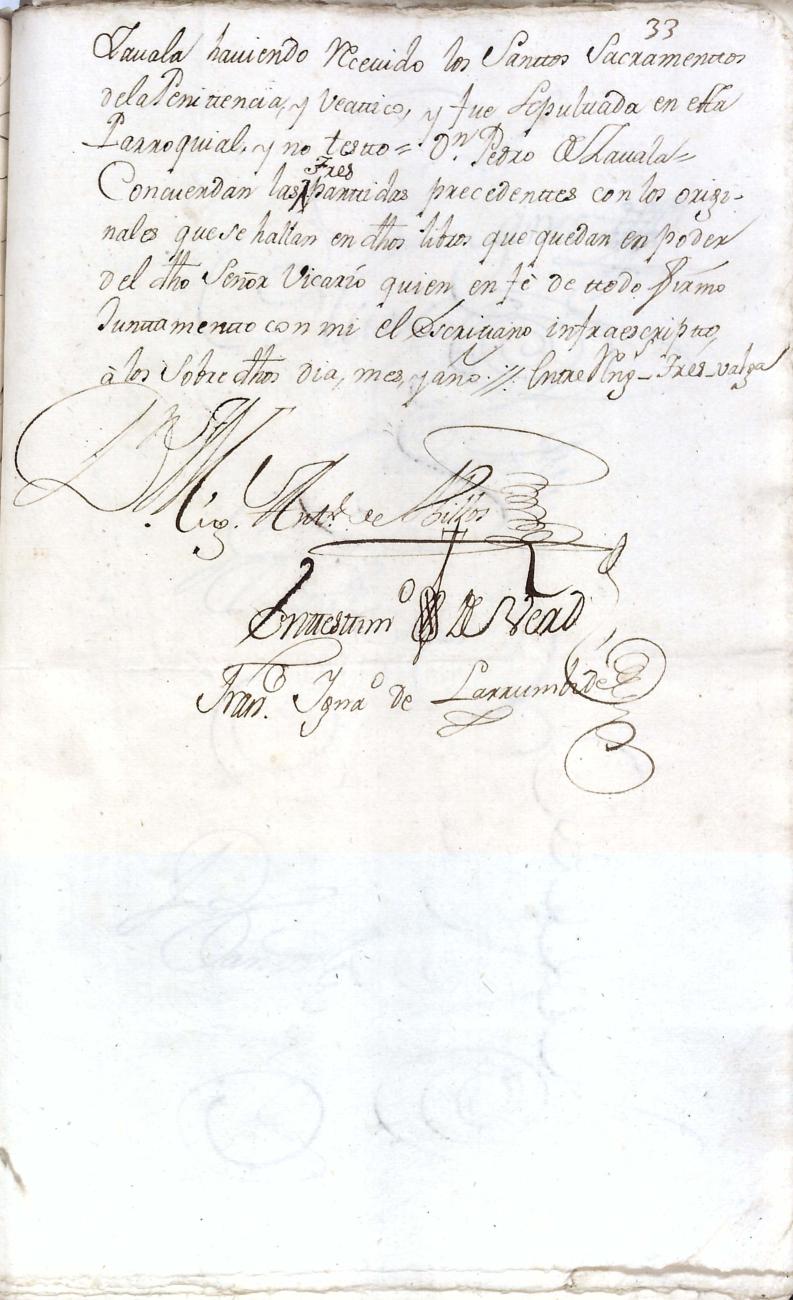 33
Zauala hauiendo Receuido los Santtos Sacramenttos
dela Penittencia, y Veattico, y fue Sepulttada en esta
Parroquial, y no testto = Dn. Pedro de Zauala =
Tres
Concuerdan las partidas precedenttes con los origi-
nales que se hallan en dhos libros que quedan en poder
del dho Señor Vicario quien en fè de ttodo firmo
Junttamentte con mi el Escriuano infraescriptto,
à los Sobre dhos dia, mes, y año. // Entre Rng - Tres - valga
Dn. Mig. Antt. de
En ttesttimo de Verd
Fran.co Ignao de Larrumbide